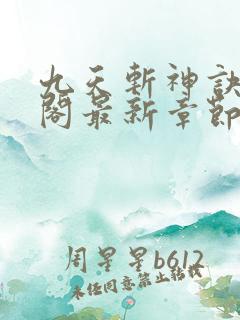 九天斬神訣
閣最新章節
周星星b612
未经同意禁止转载